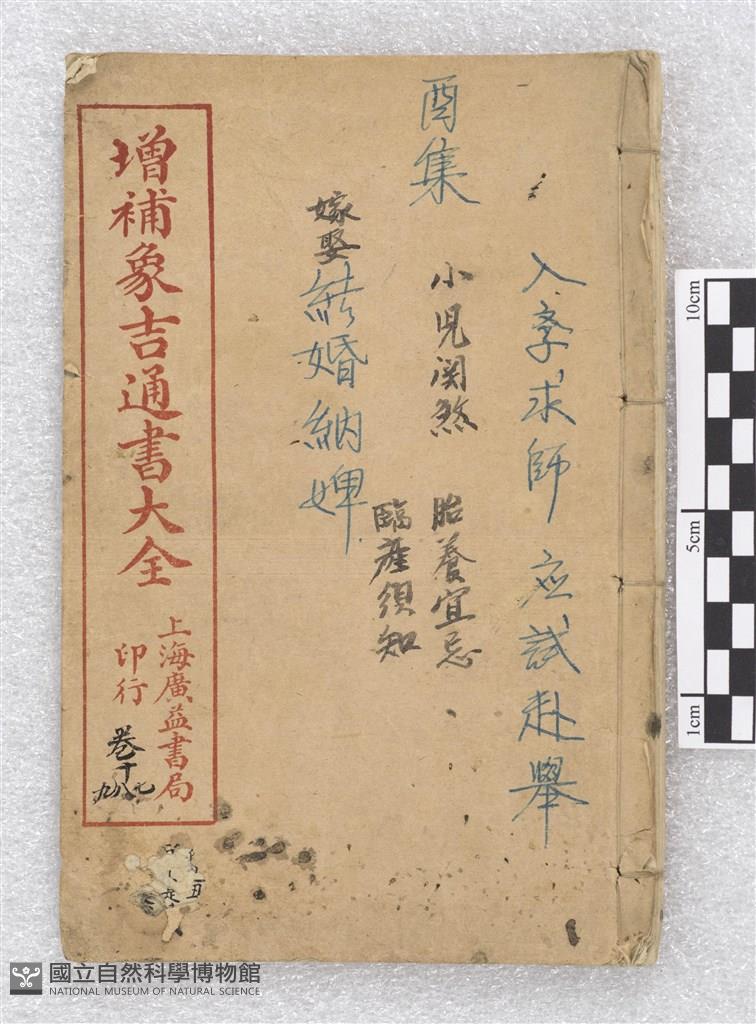 酉集
入學求師 应試赴舉
小児関煞 胎養宜忌
臨產須知
嫁娶結婚納婢
增補象吉通書大全
上海廣益書局
印行
卷十七
八
九
10cm
5cm
1cm
國立自然科學博物館
NATIONAL MUSEUM OF NATURAL SCIENCE